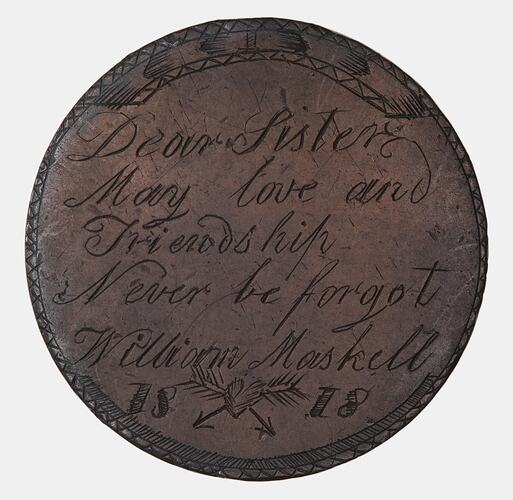 Dear Sister
May love and
Friendship
Never be forgot
William Maskell
18 18